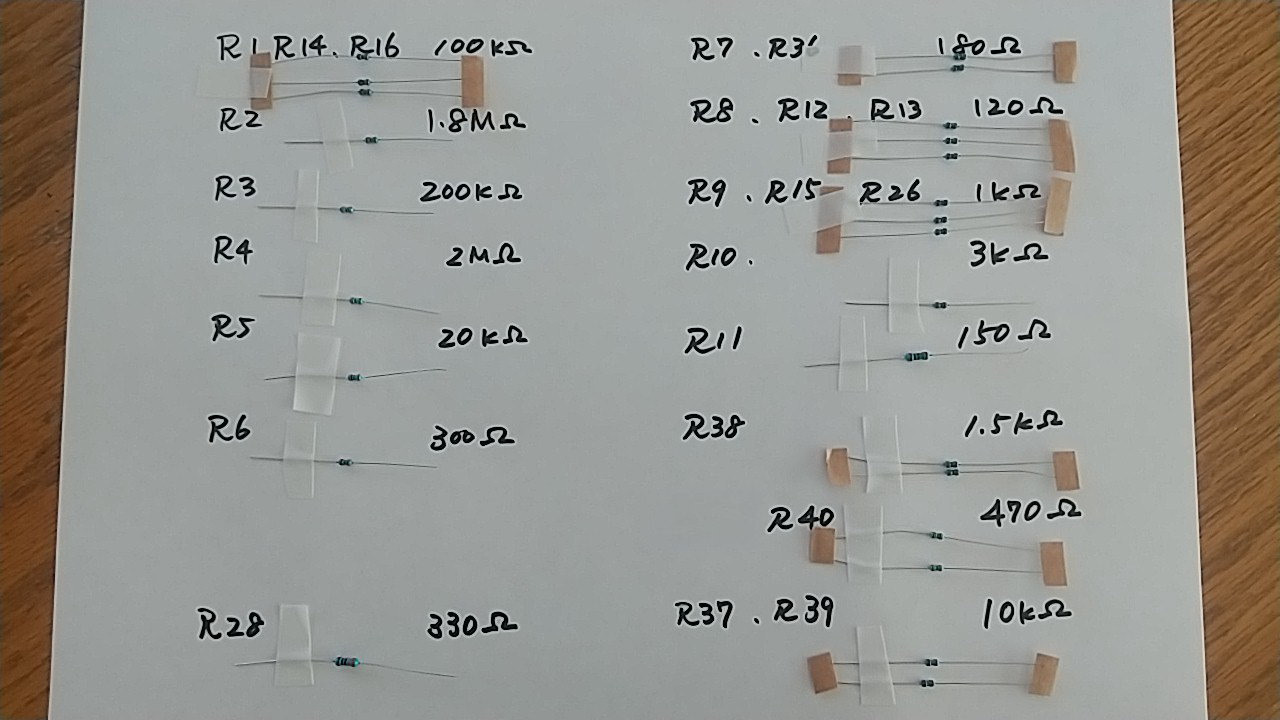 R1 R14. R16 100kΩ
R2 1.8MΩ
R3 200kΩ
R4 2MΩ
R5 20kΩ
R6 300Ω
R28 330Ω
R7 . 180Ω
R8 . R12 . R13 120Ω
R9 . R15 R26 1kΩ
R10. 3kΩ
R11 150Ω
R38 1.5kΩ
R40 470Ω
R37 . R39 10kΩ